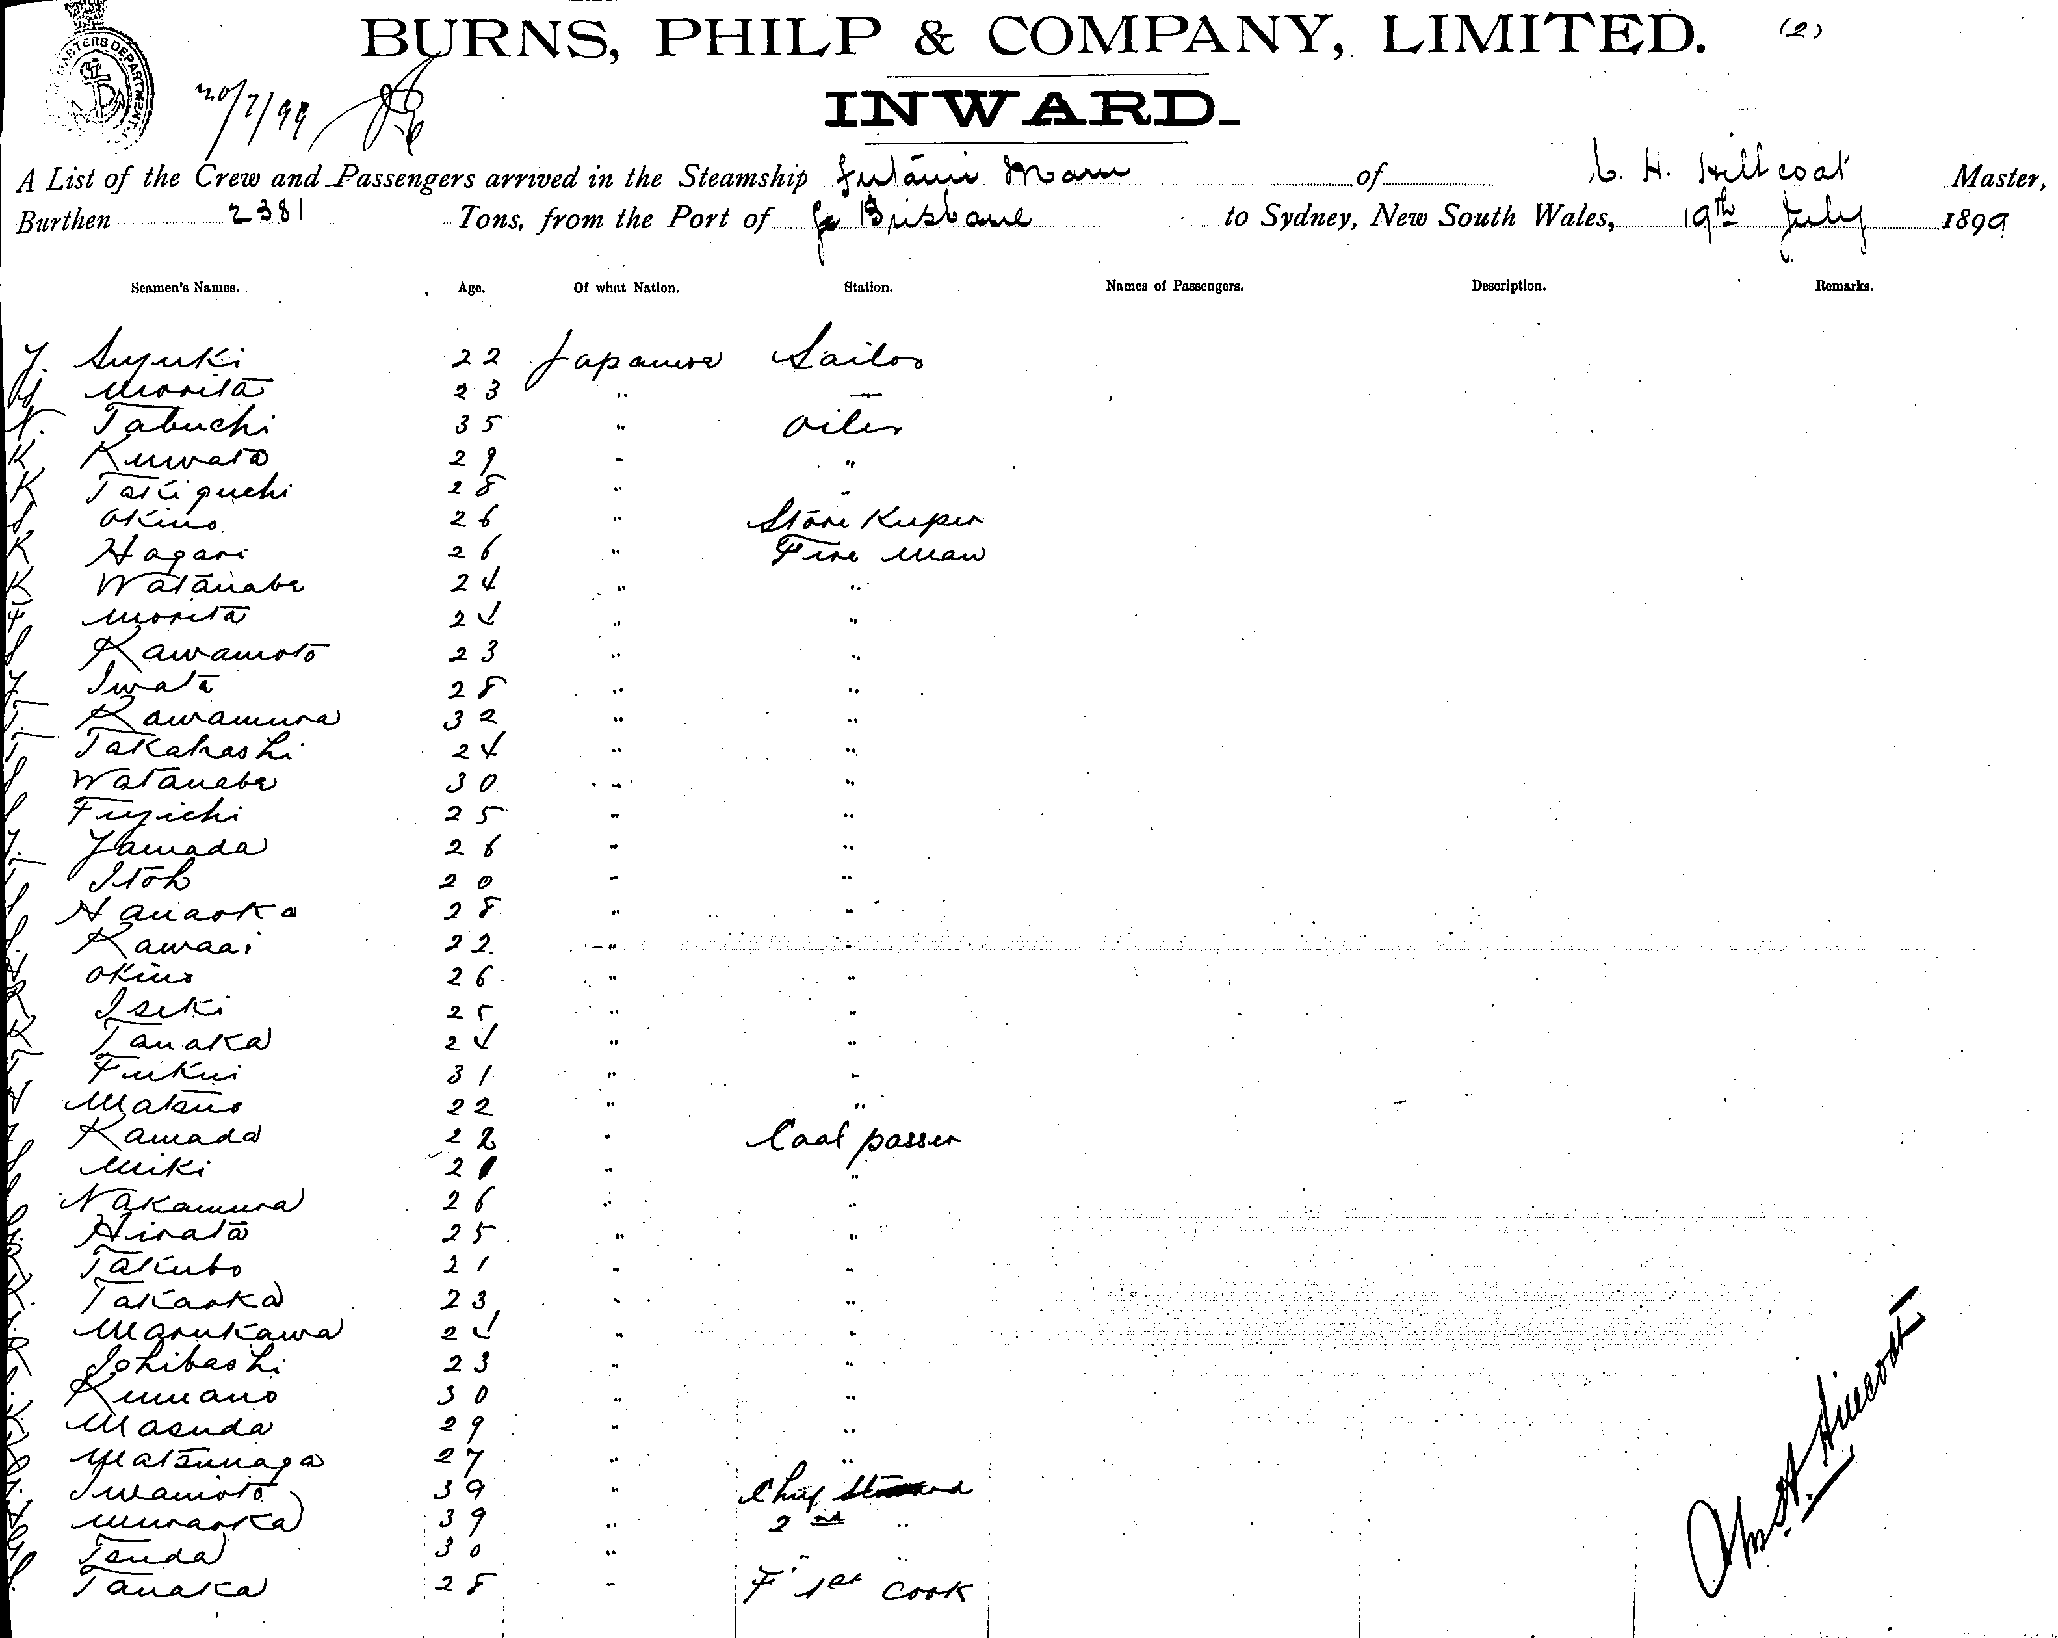 BURNS, PHILP & COMPANY, LIMITED. (2)
MASTERS DEPARTMENT
20/7/99
INWARD.
A List of the Crew and Passengers arrived in the Steamship Futami Maru of C. H. Hillcoat Master,
Burthen 2381 Tons, from the Port of Brisbane to Sydney, New South Wales, 19th July 1899
Seamen's Names. Age. Of what Nation. Station. Names of Passengers. Description. Remarks.
Y. Suzuki 22 Japanese Sailor
Morita 23 "
N. Tabuchi 35 " Oiler
K Kuwata 29 " "
K Takiguchi 28 " "
S Okino 26 " Store Keeper
K Hagari 26 " Fire Man
K Watanabe 24 " "
F Morita 24 " "
S Kawamoto 23 " "
Y Iwata 28 " "
T. Kawamura 32 " "
T Takahashi 24 " "
S Watanabe 30 " "
S Fujichi 25 " "
Y. Yamada 26 " "
T Itoh 20 " "
S Hanaoka 28 " "
S. Kawaai 22 " "
Okino 26 " "
K Iseki 25 " "
K Tanaka 24 " "
T Fukui 31 " "
Makino 22 " "
Kamada 22 " Coal passer
S Miki 21 " "
Nakamura 26 " "
Hirata 25 " "
Takubo 21 " "
K. Takaoka 23 " "
Marukawa 24 " "
K Ishibashi 23 " "
Kumano 30 " "
K Masuda 29 " "
Matsunaga 27 " "
Iwamoto 39 " Chief Steward
Muraoka 39 " 2nd "
Tsuda 30 " "
S. Tanaka 28 " F 1st Cook
Hillcoat